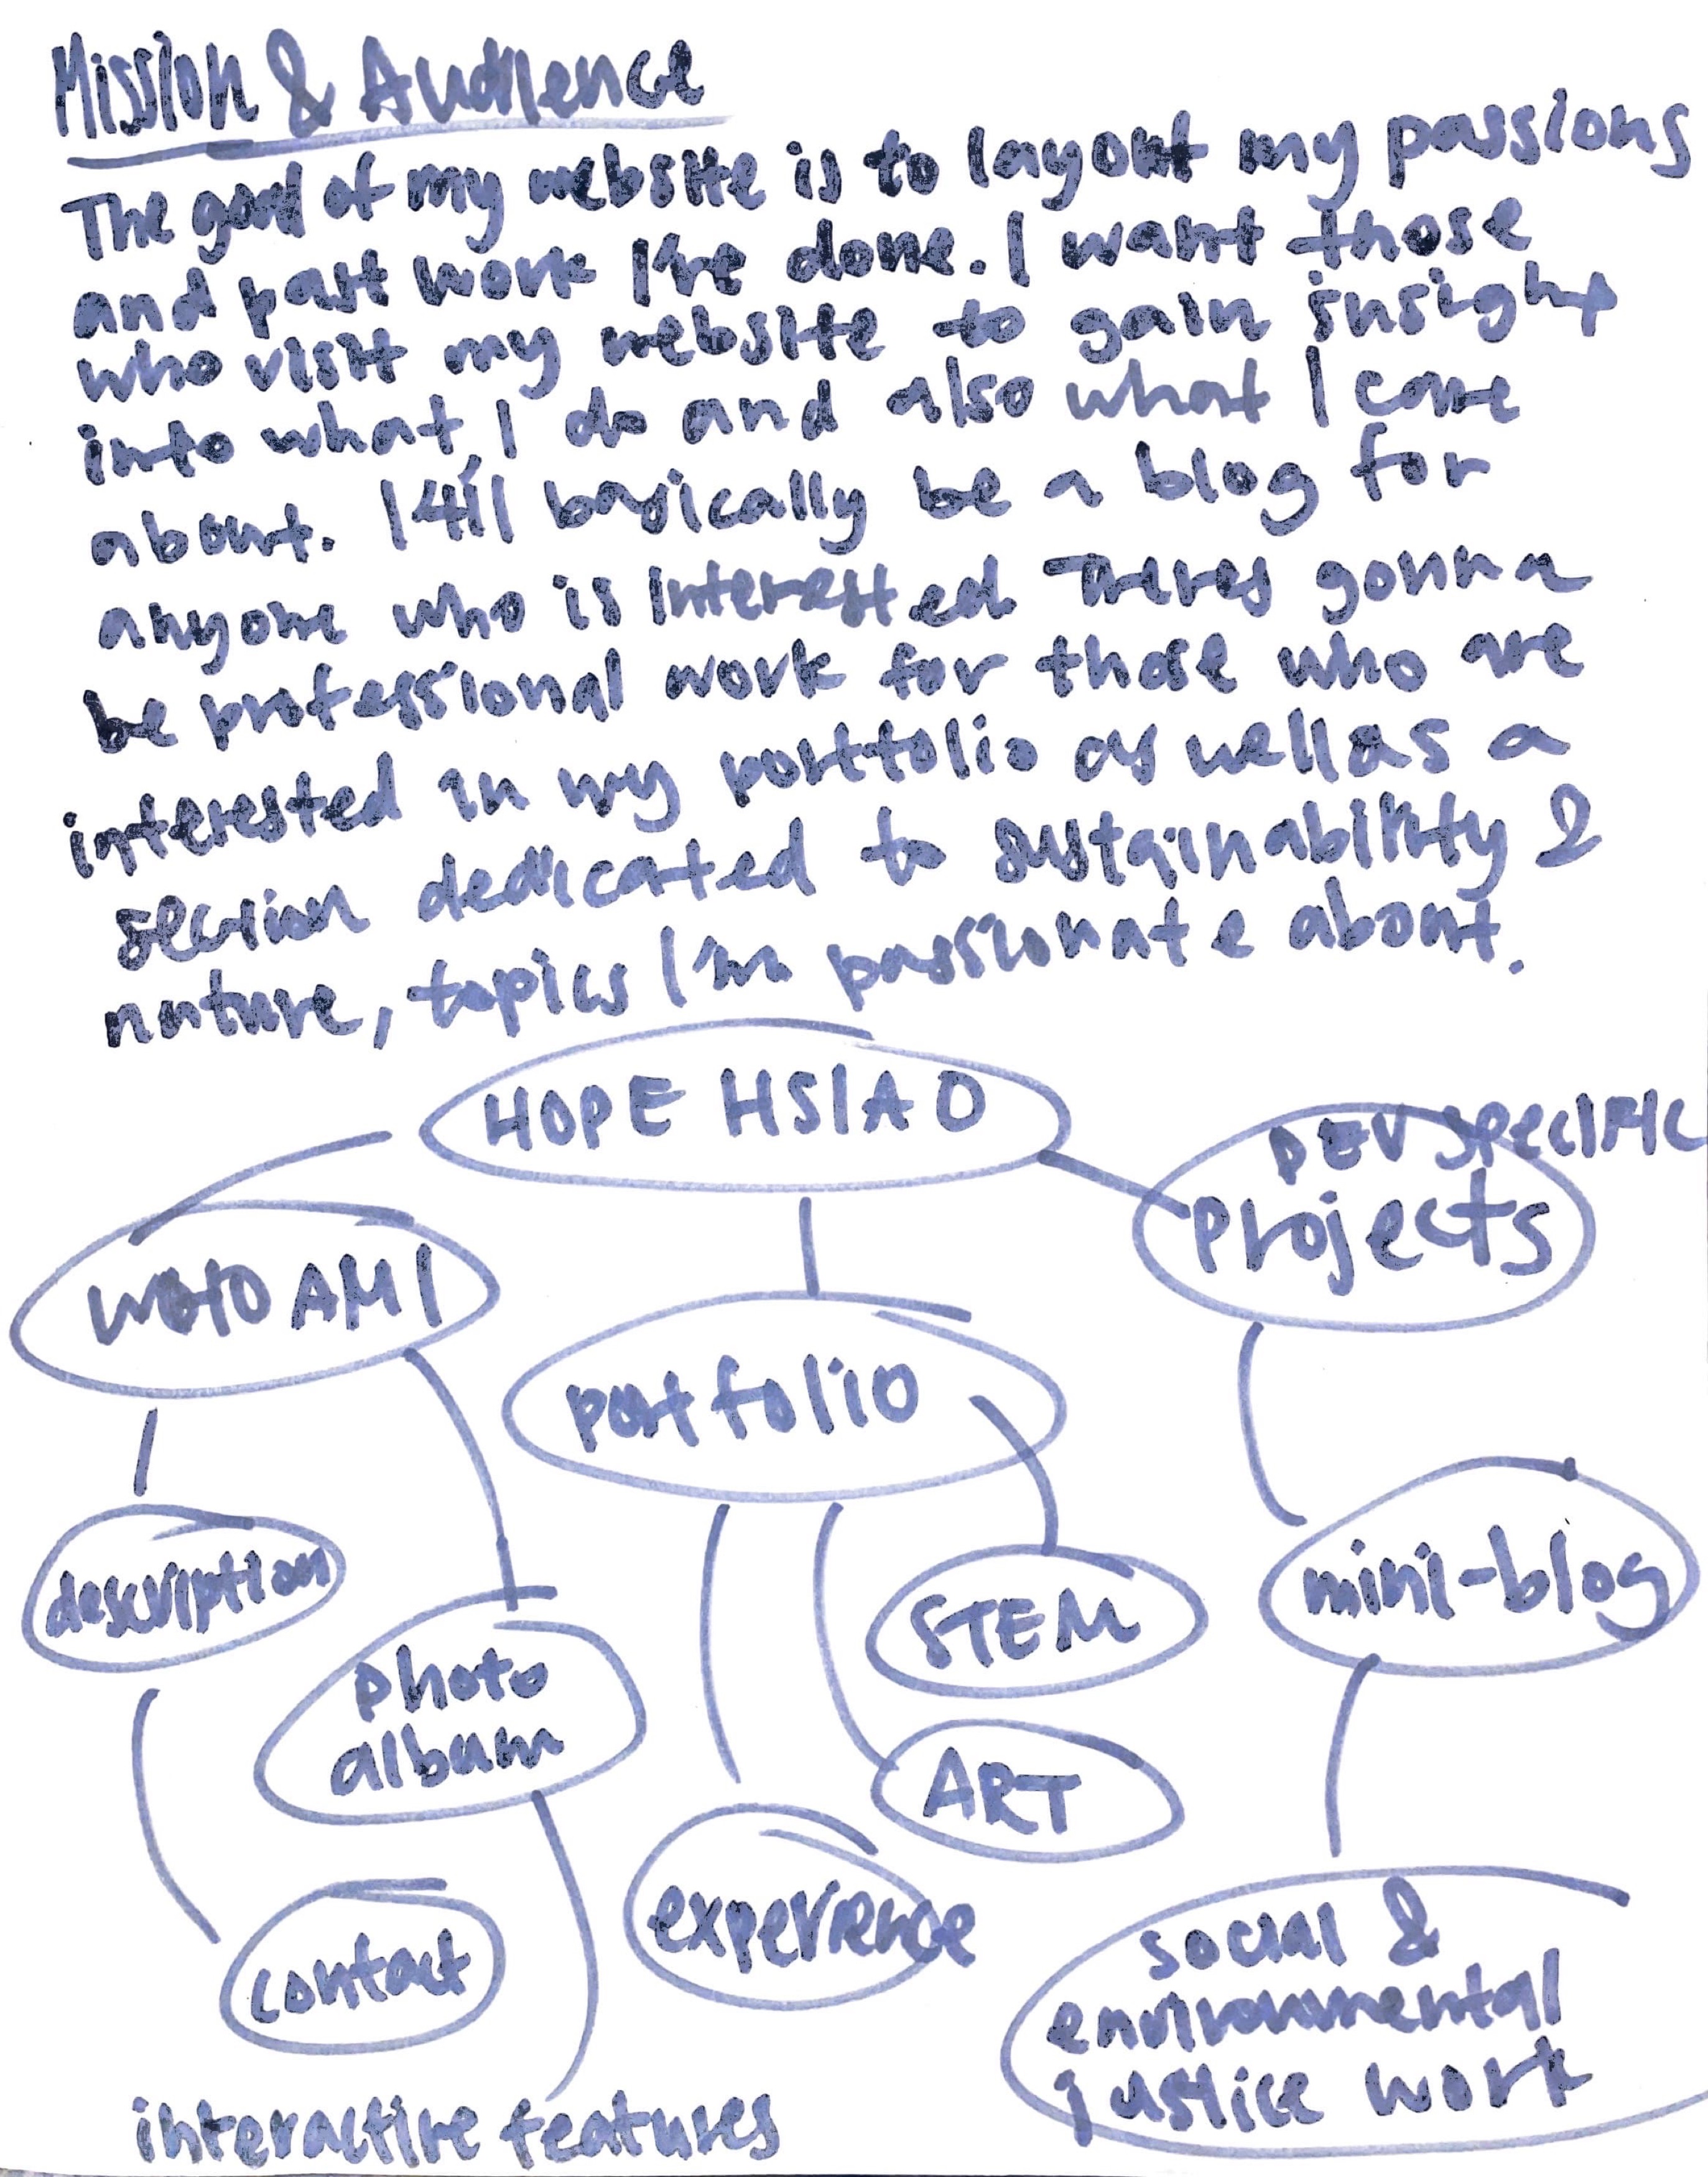 Mission & Audience
The goal of my website is to layout my passions
and past work I've done. I want those
who visit my website to gain insight
into what I do and also what I care
about. It'll basically be a blog for
anyone who is interested Theres gonna
be professional work for those who are
interested in my portfolio as well as a
section dedicated to sustainability &
nature, topics I'm passionate about.
HOPE HSIAO
DEV SPECIFIC
Projects
WHO AM I
portfolio
description
photo
album
STEM
mini-blog
ART
experience
contact
social &
environmental
justice work
interactive features